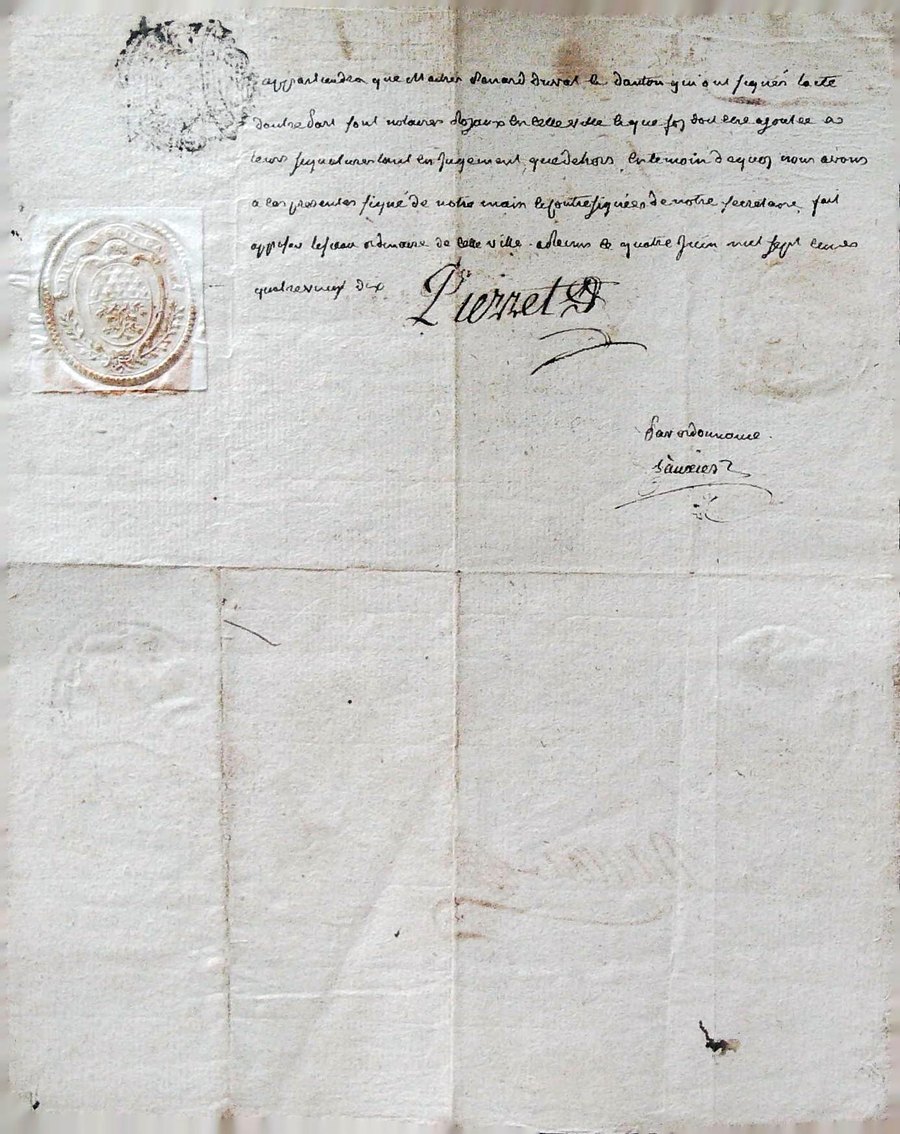 appartiendra que Maitres Panard Duval & Danton qui ont signés lacte
dautre part sont notaires Royaux en cette ville & que foy doit etre ajoutée a
leurs signatures tant en jugement que dehors en temoin de quoy nous avons
a ces presentes signé de notre main & contresignées de notre secretaire fait
apposer le sceau ordinaire de cette ville. a Reims ce quatre Juin mil sept cens
quatrevingt dix
Pierret
Par ordonnance.